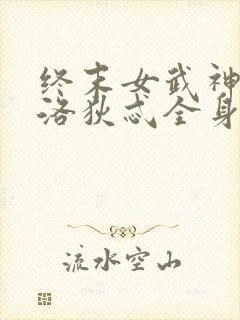 终末女武神
洛狄忒全身
流水空山